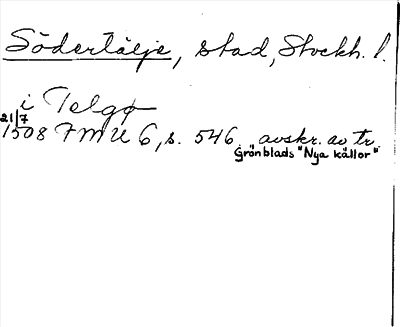 Södertälje, stad, Stockh. l.
i Telgø
21/7
1508 FMU 6, s. 546, avskr. av tr.
Grönblads "Nya källor"